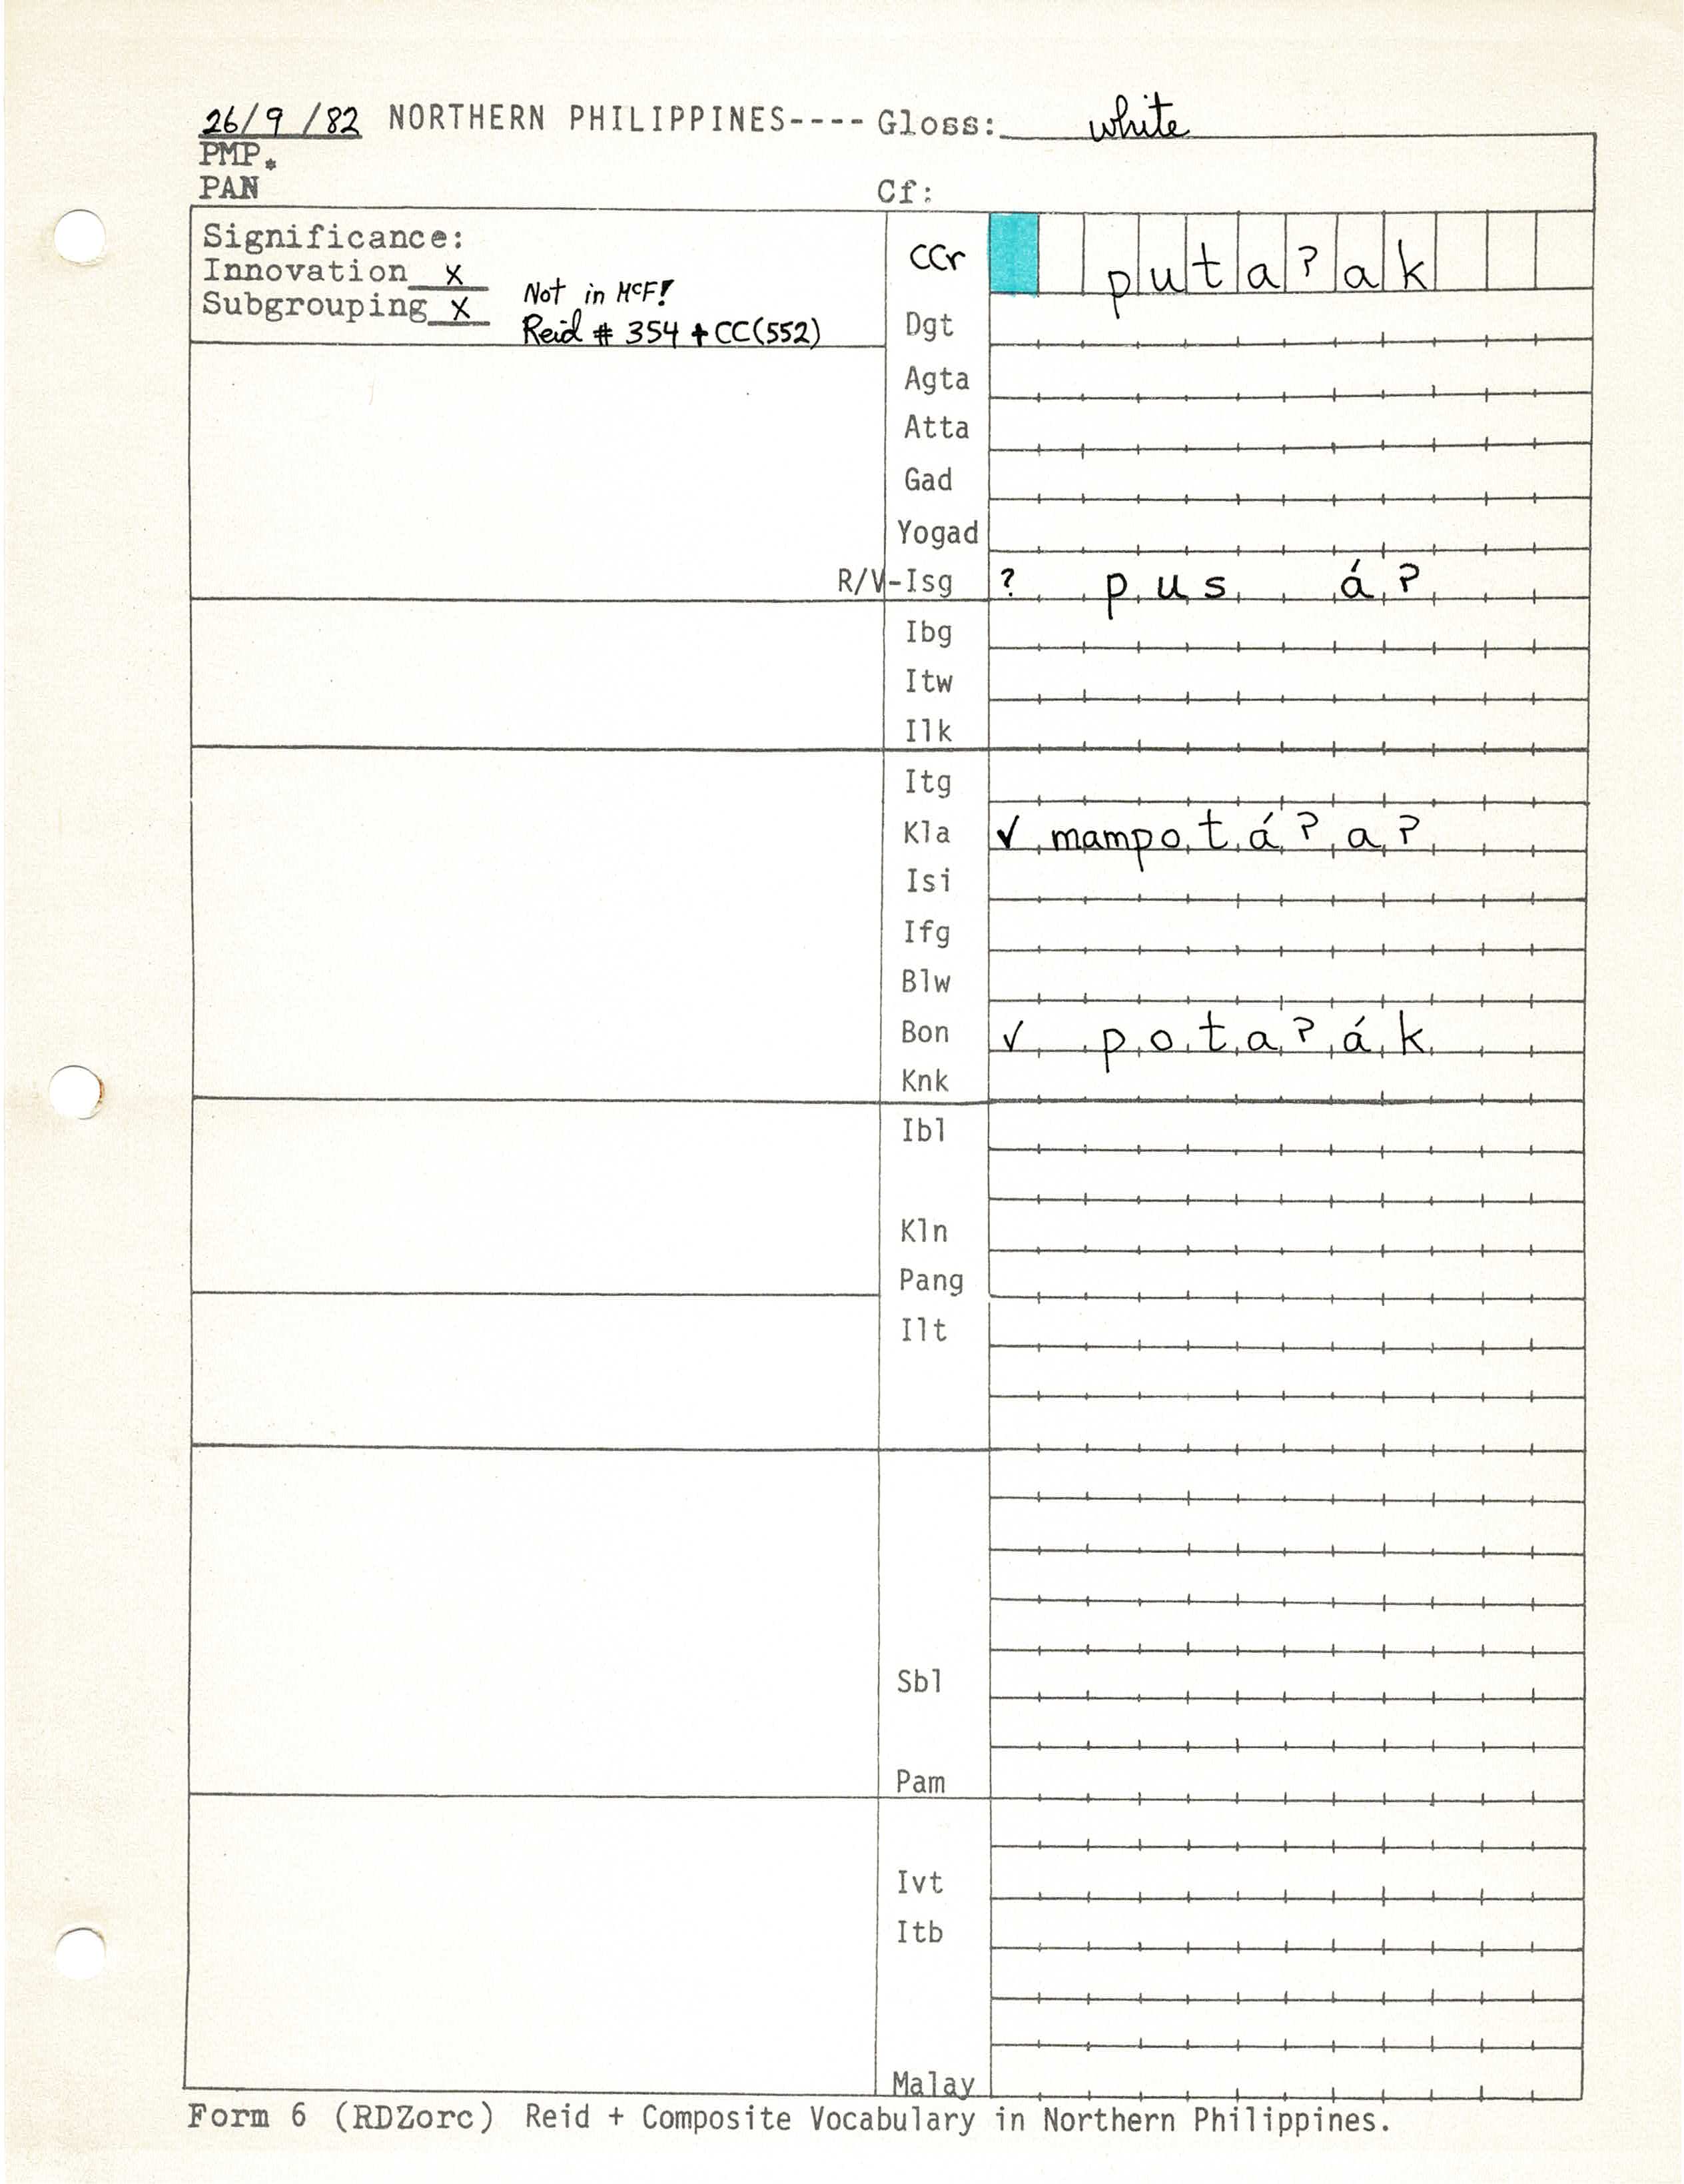 26/9/82 NORTHERN PHILIPPINES---- Gloss: white
PMP*
PAN Cf:
Significance:
Innovation x
Subgrouping x
Not in McF!
Reid # 354 + CC(552)
CCr puta?ak
Dgt
Agta
Atta
Gad
Yogad
R/V-Isg ? pus á?
Ibg
Itw
Ilk
Itg
Kla ✓ mampotá?a?
Isi
Ifg
Blw
Bon ✓ pota?ák
Knk
Ibl
Kln
Pang
Ilt
Sbl
Pam
Ivt
Itb
Malay
Form 6 (RDZorc) Reid + Composite Vocabulary in Northern Philippines.